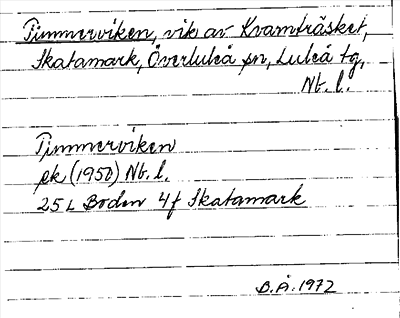 Timmerviken, vik av Kvamträsket,
Skatamark, Överluleå sn, Luleå tg,
Nb. l.
Timmerviken
ek (1950) Nb. l.
25 L Boden 4f Skatamark
B.Å. 1972